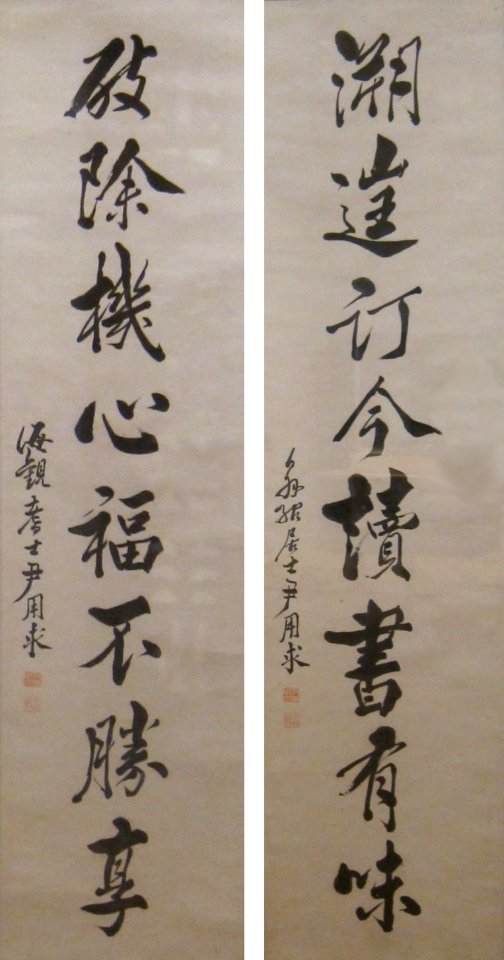 溯往訂今讀書有味
居士尹用求
破除機心福不勝享
海觀士尹用求